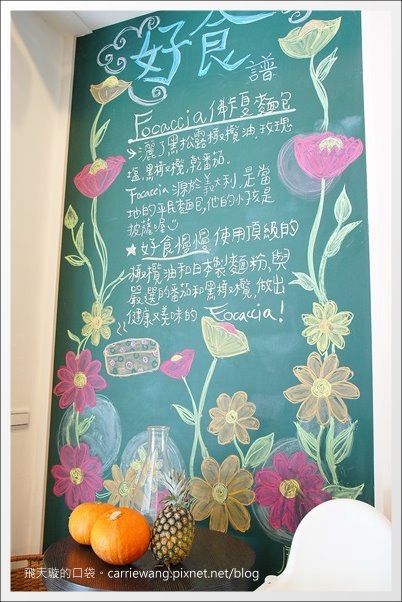 好食
譜
Focaccia 佛卡夏麵包
→灑了黑松露橄欖油.玫瑰
塩.黑橄欖.乾番茄.
Focaccia 源於義大利,是當
地的平民麵包,他的小孩是
披薩喔
★好食慢慢 使用頂級的
橄欖油和日本製麵粉,與
嚴選的番茄和黑橄欖,做出
健康又美味的 Focaccia!
飛天璇的口袋。carriewang.pixnet.net/blog